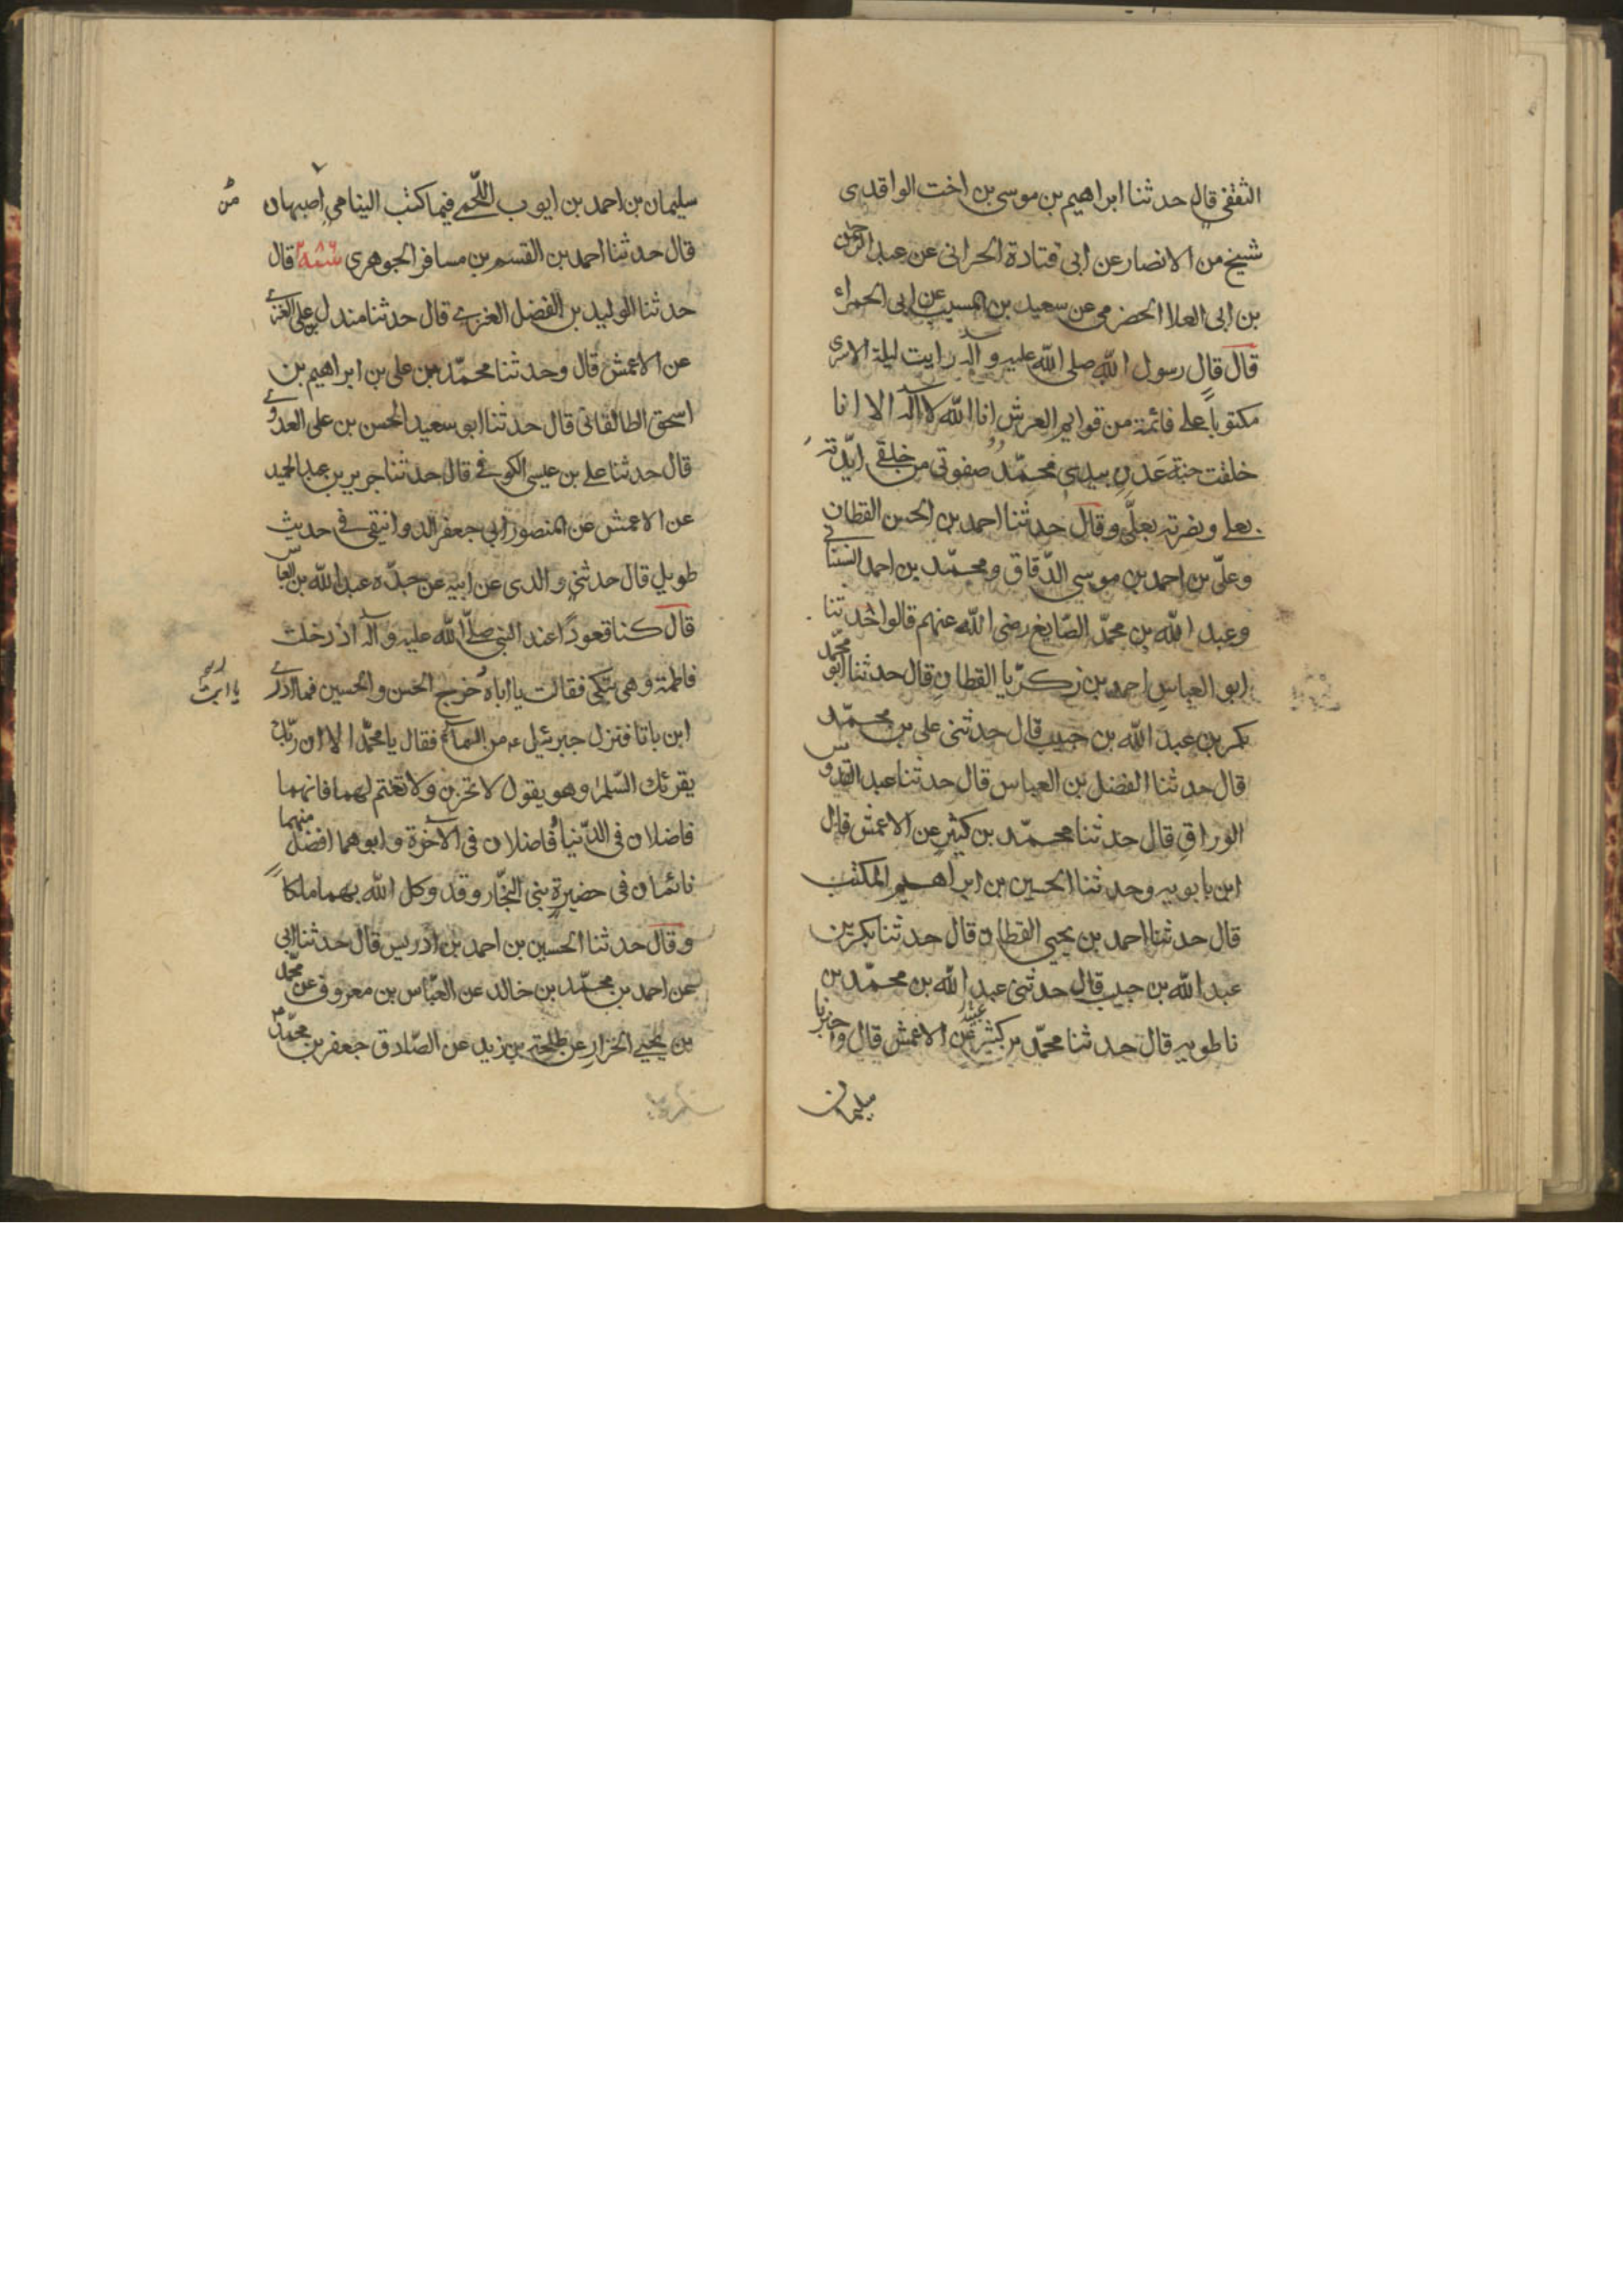 الثقفي قال حدثنا ابراهيم بن موسى بن اخت الواقدى
شيخ من الانصار عن ابى قتادة الحرانى عن عبد الرحمن
بن ابى العلا الحضرمى عن سعيد بن المسيب عن ابى الحمراء
قال قال رسول الله صلى الله عليه وآله رايت ليلة الاسرى
مكتوباً على قائمة من قوايم العرش انا الله لا آله الا انا
خلقت جنة عَدن بيدى محمّد صفوتى من خلقى ايّدته
بعلى ونصرته بعلّى وقال حدثنا احمد بن الحسن القطان
وعلّى بن احمد بن موسى الدّقاق ومحمّد بن احمد السنانى
وعبد الله بن محمّد الصّايغ رضى الله عنهم قالوا حدثنا
ابو العباس احمد بن زكريّا القطان قال حدثنا ابو محمّد
بكر بن عبد الله بن حبيب قال حدثنى على بن محمّد
قال حدثنا الفضل بن العباس قال حدثنا عبد القدوس
الوراق قال حدثنا محمّد بن كثير عن الاعمش قال
ابن بابويه وحدثنا الحسين بن ابراهيم المكتب
قال حدثنا احمد بن يحيى القطان قال حدثنا بكر بن
عبد الله بن حبيب قال حدثنى عبد الله بن محمّد بن
ناطويه قال حدثنا محمّد بن كثير عن الاعمش قال واخبرنا
سليمان
سليمان بن احمد بن ايوب اللّخمى فيما كتب الينا من اصبهان
قال حدثنا احمد بن القسم بن مسافر الجوهرى سنة ٢٨٦ قال
حدثنا الوليد بن الفضل العنزى قال حدثنا مندل بن على العنزى
عن الاعمش قال وحدثنا محمّد بن على بن ابراهيم بن
اسحق الطالقانى قال حدثنا ابو سعيد الحسن بن على العدوى
قال حدثنا على بن عيسى الكوفى قال حدثنا جرير بن عبد الحميد
عن الاعمش عن المنصور ابى جعفر الدوانيقى فى حديث
طويل قال حدثنى والدى عن ابيه عن جدّه عبد الله بن العباس
قال كنا قعوداً عند النبى صلّى الله عليه وآله اذ دخلت
فاطمة وهى تبكى فقالت يا اباه خرج الحسن والحسين فما ادرى
يا ابت
اين باتا فنزل جبرئيل عم من السماء فقال يا محمّد الا ان ربّك
يقرئك السّلم وهو يقول لا تحزن ولا تغتم لهما فانهما
فاضلان فى الدّنيا فاضلان فى الآخرة وابوهما افضل منهما
نائمان فى حضيرة بنى النجّار وقد وكل الله بهما ملكاً
وقال حدثنا الحسين بن احمد بن ادريس قال حدثنا ابى
عن احمد بن محمّد بن خالد عن العبّاس بن معروف عن محمّد
بن يحيى الخزاز عن طلحة بن يزيد عن الصّادق جعفر بن محمّد